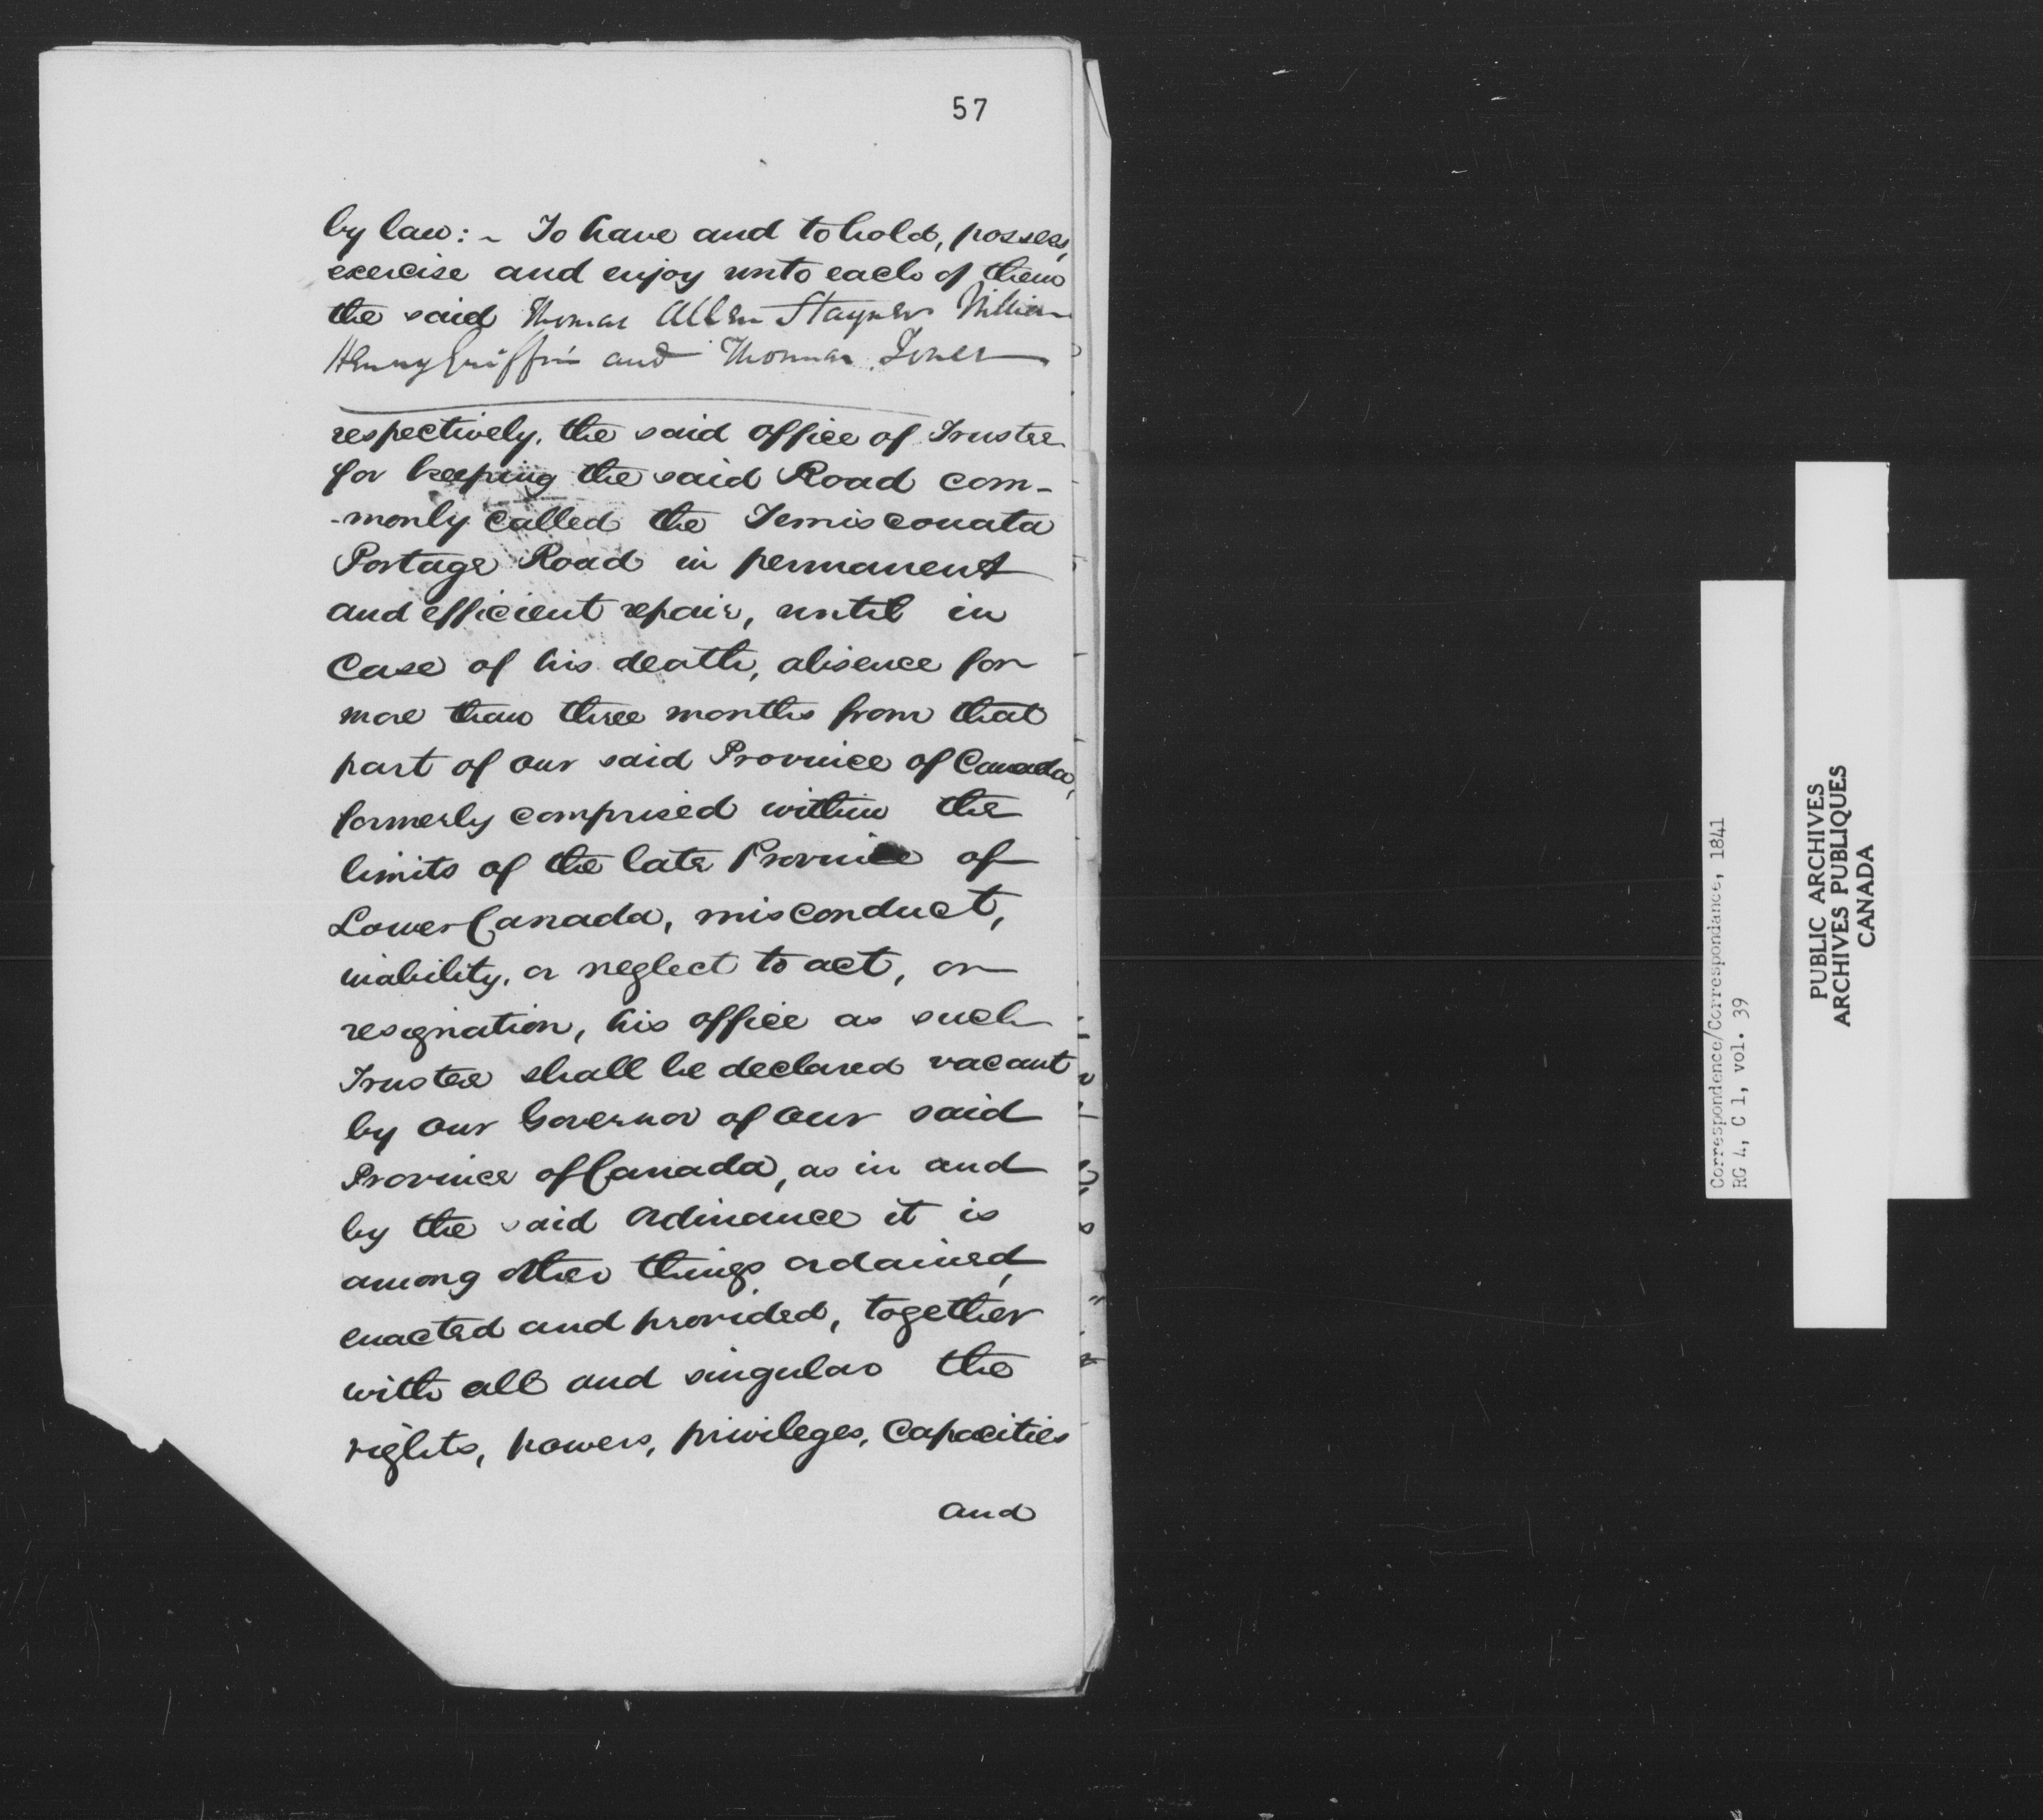 57
by law: ~ To have and to hold, possess,
exercise and enjoy unto each of them
the said Thomas Allen Stayner William
Henry Griffin and Thomas
respectively, the said office of Trustee
for keeping the said Road com-
-monly called the Temiscouata
Portage Road in permanent
and efficient repair, until in
Case of his death, absence for
more than three months from that
part of our said Province of Canada,
formerly comprised within the
limits of the late Province of
Lower Canada, misconduct,
inability, or neglect to act, or
resignation, his office as such
Trustee shall be declared vacant
by our Governor of our said
Province of Canada, as in and
by the said Ordinance it is
among other things ordained,
enacted and provided, together
with all and singular the
rights, powers, privileges, Capacities
and
Correspondence/Correspondance, 1841
RG 4, C 1, vol. 39
PUBLIC ARCHIVES
ARCHIVES PUBLIQUES
CANADA